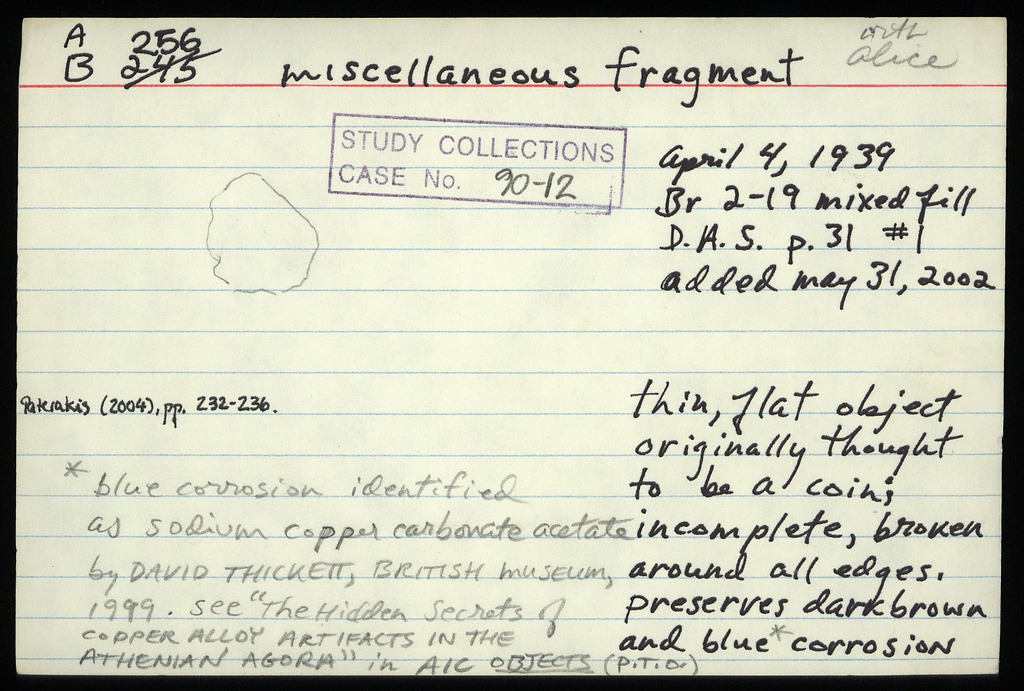 A 256
B 245
miscellaneous fragment
with
Alice
STUDY COLLECTIONS
CASE No. 90-12
April 4, 1939
Br 2-19 mixed fill
D.A.S. p. 31 #1
added may 31, 2002
Paterakis (2004), pp. 232-236.
thin, flat object
originally thought
to be a coin;
incomplete, broken
around all edges.
preserves dark brown
and blue* corrosion
* blue corrosion identified
as sodium copper carbonate acetate
by DAVID THICKETT, BRITISH MUSEUM,
1999. see "The Hidden Secrets of
COPPER ALLOY ARTIFACTS IN THE
ATHENIAN AGORA" in AIC OBJECTS (P.T.O.)